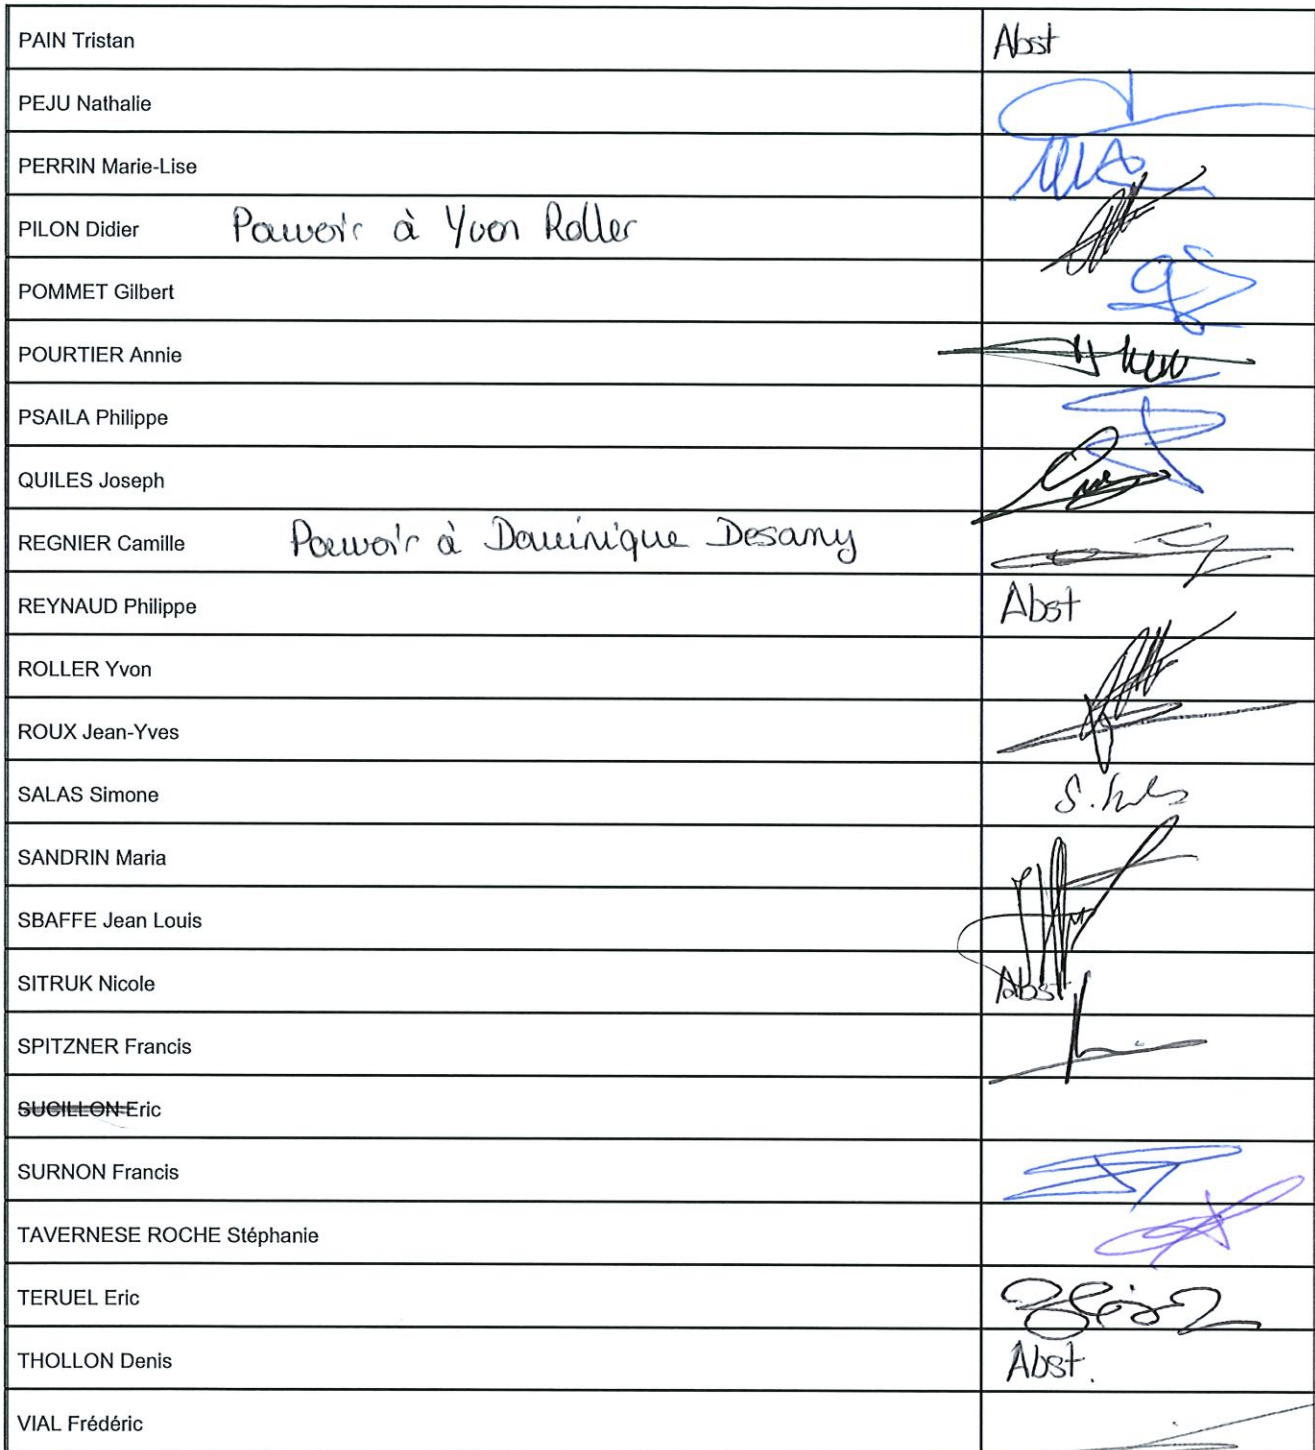 PAIN Tristan Abst
PEJU Nathalie
PERRIN Marie-Lise
PILON Didier Pouvoir à Yvon Roller
POMMET Gilbert
POURTIER Annie
PSAILA Philippe
QUILES Joseph
REGNIER Camille Pouvoir à Dominique Desamy
REYNAUD Philippe Abst
ROLLER Yvon
ROUX Jean-Yves
SALAS Simone
SANDRIN Maria
SBAFFE Jean Louis
SITRUK Nicole Abst
SPITZNER Francis
SUCILLON Eric
SURNON Francis
TAVERNESE ROCHE Stéphanie
TERUEL Eric
THOLLON Denis Abst.
VIAL Frédéric